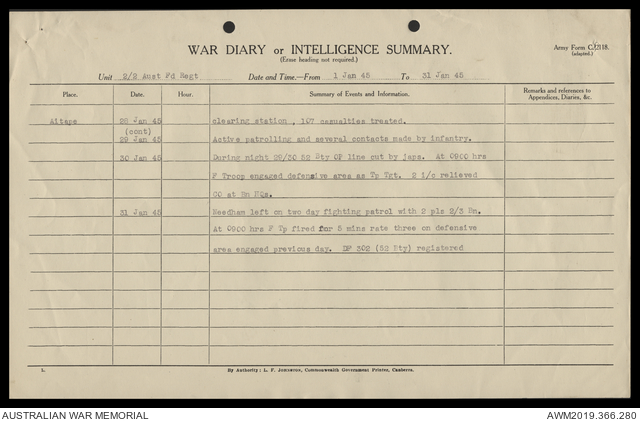 WAR DIARY or INTELLIGENCE SUMMARY.
(Erase heading not required.)
Army Form C.2118.
(adapted.)
Unit 2/2 Aust Fd Regt Date and Time.—From 1 Jan 45 To 31 Jan 45
Place. Date. Hour. Summary of Events and Information. Remarks and references to Appendices, Diaries, &c.
Aitape 28 Jan 45 clearing station, 107 casualties treated.
(cont)
29 Jan 45 Active patrolling and several contacts made by infantry.
30 Jan 45 During night 29/30 52 Bty OP line cut by japs. At 0900 hrs
F Troop engaged defensive area as Tp Tgt. 2 i/c relieved
CO at Bn HQs.
31 Jan 45 Needham left on two day fighting patrol with 2 pls 2/3 Bn.
At 0900 hrs F Tp fired for 5 mins rate three on defensive
area engaged previous day. DF 302 (52 Bty) registered
1.
By Authority: L. F. Johnston, Commonwealth Government Printer, Canberra.
AUSTRALIAN WAR MEMORIAL
AWM2019.366.280